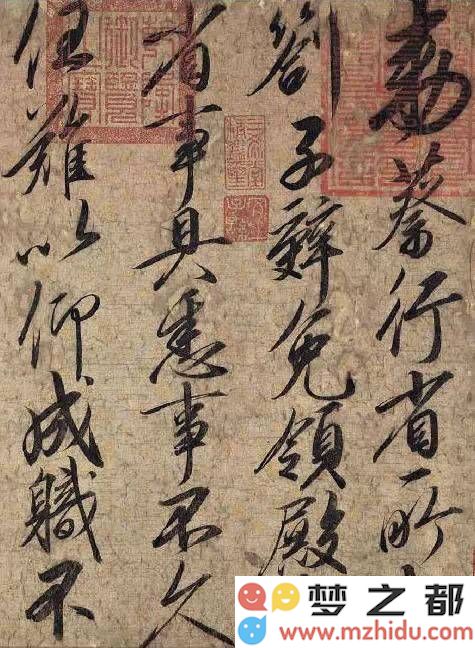 勅蔡行省所
劄子辭免領殿
省事具悉事不久
任難以仰成職不
梦之都
www.mzhidu.com